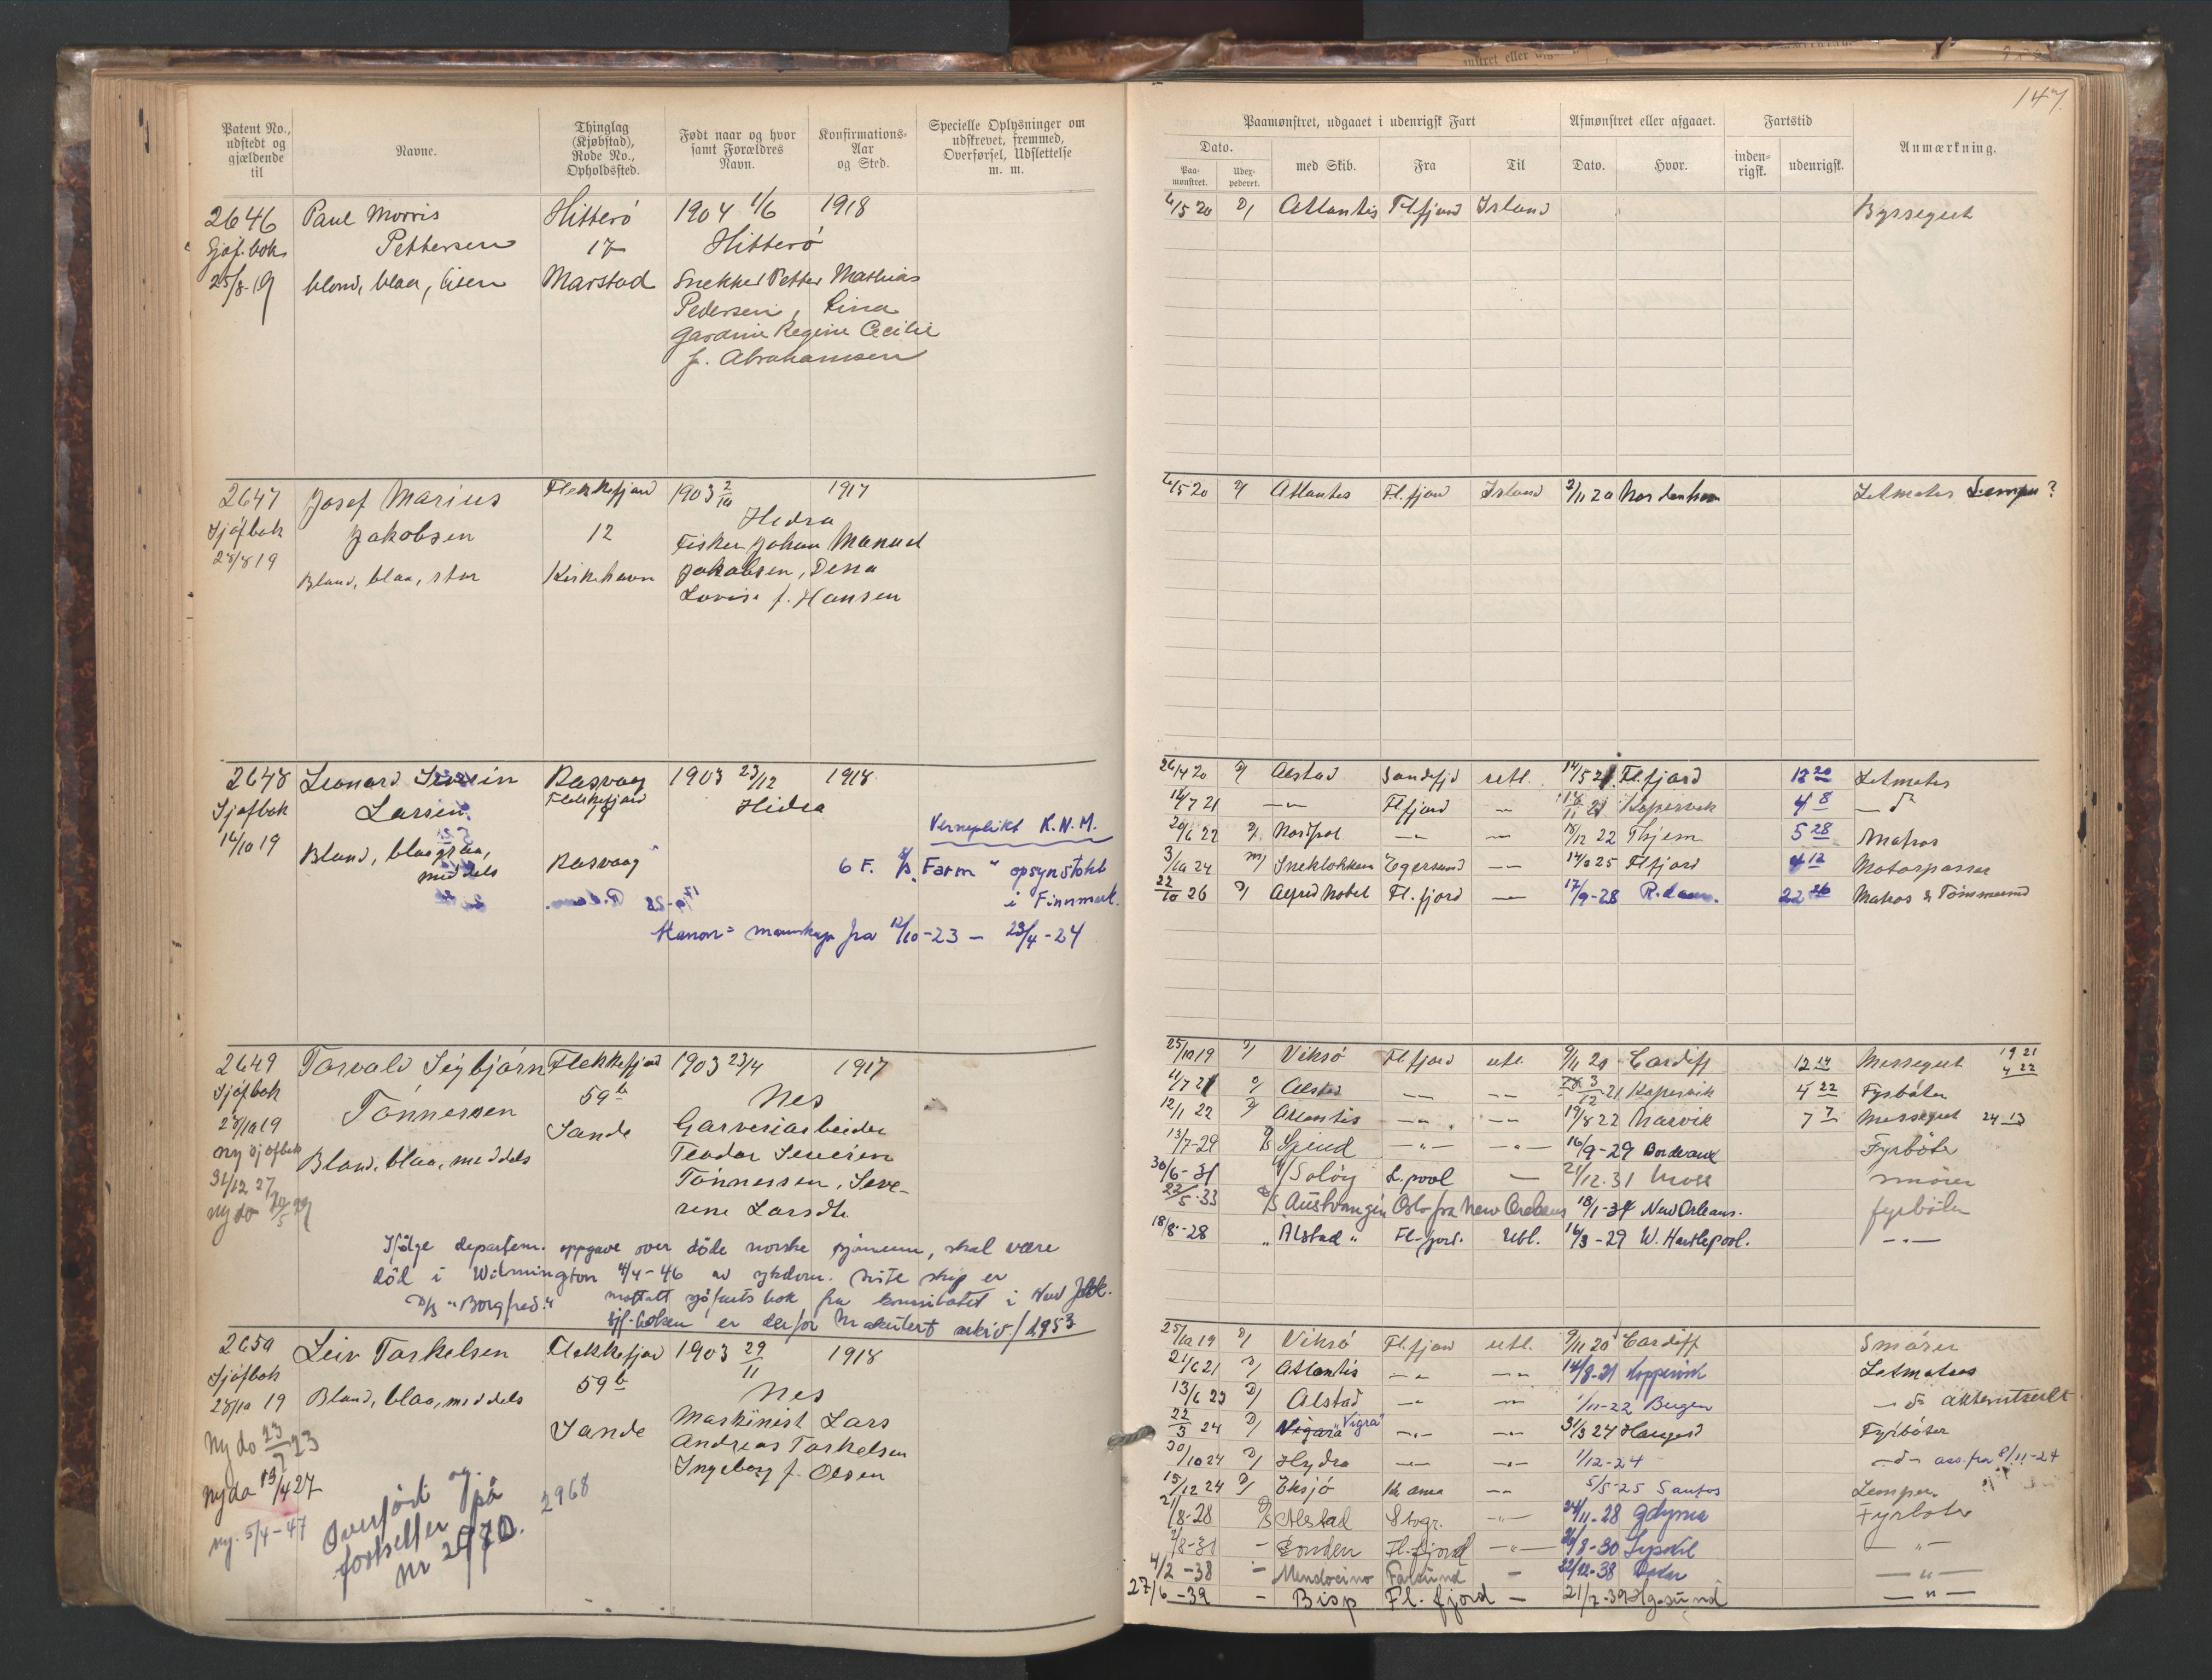 147.
Patent No., udstedt og gjældende til
Navne.
Thinglag (Kjøbstad), Rode No., Opholdssted.
Født naar og hvor samt Forældres Navn.
Konfirmations-Aar og Sted.
Specielle Oplysninger om udskrevet, fremmed, Overførsel, Udslettelse m. m.
Paamønstret, udgaaet i udenrigsk Fart
Afmønstret eller afgaaet.
Fartstid
Dato.
Paa-mønstret.
Udex-pederet.
med Skib.
Fra
Til
Dato.
Hvor.
inden-rigsk.
udenrigsk.
Anmærkning.
2646 Paul Morris Hitterö 1904 1/6 1918
Sjøf.bok Pettersen 17 Hitterö
25/8-19 blond, blaa, liten Marstad Snekker Petter Mathias
Pedersen, Lina
Gardine Regine Cecilie
f. Abrahamsen
6/5 20 D/ Atlantis Fl.fjord Island Byssegut
2647 Josef Marius Flekkefjord 1903 2/10 1917
Sjøfbok Jakobsen 12 Hidra
28/8 19 Fisker Johan Manuel
Blond, blaa, stor Kirkehavn Jakobsen, Dena
Lovise f. Hansen
6/5 20 D/ Atlantis Fl.fjord Island 2/11 20 Nordenham Letmatros Lemper?
2648 Leonard Severin Rasvaag 1903 23/12 1918
Sjøfbok Larsen Flekkefjord Hidra
14/10 19 Blond, blaagraa, middels Rasvaag
Verneplikt K.N.M.
6 F. "Farm" opsynstokt
i Finnmark.
Kanon= mannskap fra 12/10-23 — 23/4-24
26/4 20 D/ Alstad Sandefjd utl. 14/5 21 Fl.fjord 12 20 Letmatros
14/7 21 — Flfjord — 11 21 Kopervik 4 8 — d°
20/6 22 D/ Nordpol — — 18/12 22 Thjem 5 28 Matros
3/10 24 M/ Sneklokken Egersund — 25 Flfjord 4 12 Motorpasser
22/10 26 D/ Alfred Nobel Fl.fjord — 17/9-28 R.dam. 22 26 Matros & Tömmermd
2649 Torvald Sigbjörn Flekkefjord 1903 23/4 1917
Sjøfbok Tönnessen 59 b Nes
28/10 19 Sande Garveriarbeider
ny sjøfbok Blond, blaa, middels Teodor Severin
31/12 27 Tönnessen, Seve-
ny do 5 29 rine Larsdtr.
Ifölge departem. oppgave over döde norske sjömenn, skal være
död i Wilmington 4/4-46 av sykdom. Siste skip er
D/S "Borgfred". mottatt sjöfartsbok fra konsulatet i New York.
sjf.boken er derfor makulert arkiv / 1953
25/10 19 D/ Viksö Fl.fjord utl. 9/11 20 Cardiff 12 14 Messegut 19 21
4 22
11/7 21 D/ Alstad — — 3/12 21 Kopervik 4 22 Fyrböter
12/1 22 D/ Atlantis — — 19/8 22 Narvik 7 7 Messegut 24 13
13/7-29 D/S Spind — — 16/9-29 Bordeaux Fyrböter
30/6-31 Solöy L.pool — 21/12.31 Moss smörer
22/5-33 D/S Austvangen Oslo fra New Orleans 18/1-34 New Orleans. fyrböter
18/8-28 " Alstad " Fl.fjord. Utl. 16/3-29 W. Hartlepool. — " —
2650 Leiv Torkelsen Flekkefjord 1903 29/11 1918
Sjøfbok 59 b Nes
28/10 19 Blond, blaa, middels Sande Maskinist Lars
Ny do 23/7 23 Andreas Torkelsen
Ny do 13/4 27 Ingeborg f. Olsen
ny. 5/4-47
Overfört og
fortsetter på
nr 2970.
2968
25/10 19 D/ Viksö Fl.fjord utl. 9/11 20 Cardiff Smörer
21/6 21 D/ Atlantis — — 14/8-21 Koppervik Letmatros
13/6 23 D/ Alstad — — 1/11-22 Bergen — d°
22/3 24 D/ "Vigra" — — 31/3 24 Haugesd Fyrböter
30/10 24 D/ Hydra — — 1/12-24 — d — ass. fra 8/11-24
15/12 24 D/ Eksjö — 5/5-25 Santos Lemper.
21/8-28 D/S Alstad Stvgr. — 24/11-28 Gdynia Fyrböter
8-30 — Fl.fjord — " — 26/8-30 Lysekil — " —
4/2-38 — Mendocino Farsund — 22/12-38 — " —
27/6-39 — Bisp Fl.fjord — 21/7-39 Hgesund — " —